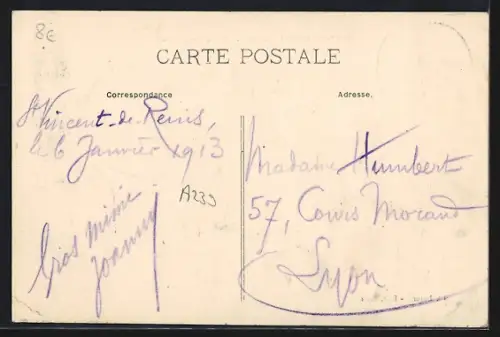 8€
CARTE POSTALE
Correspondance
Adresse.
St Vincent-de-Reins,
le 6 Janvier 1913
A239
Gros mimi
Joanny
Madame Humbert
57, Cours Morand
Lyon